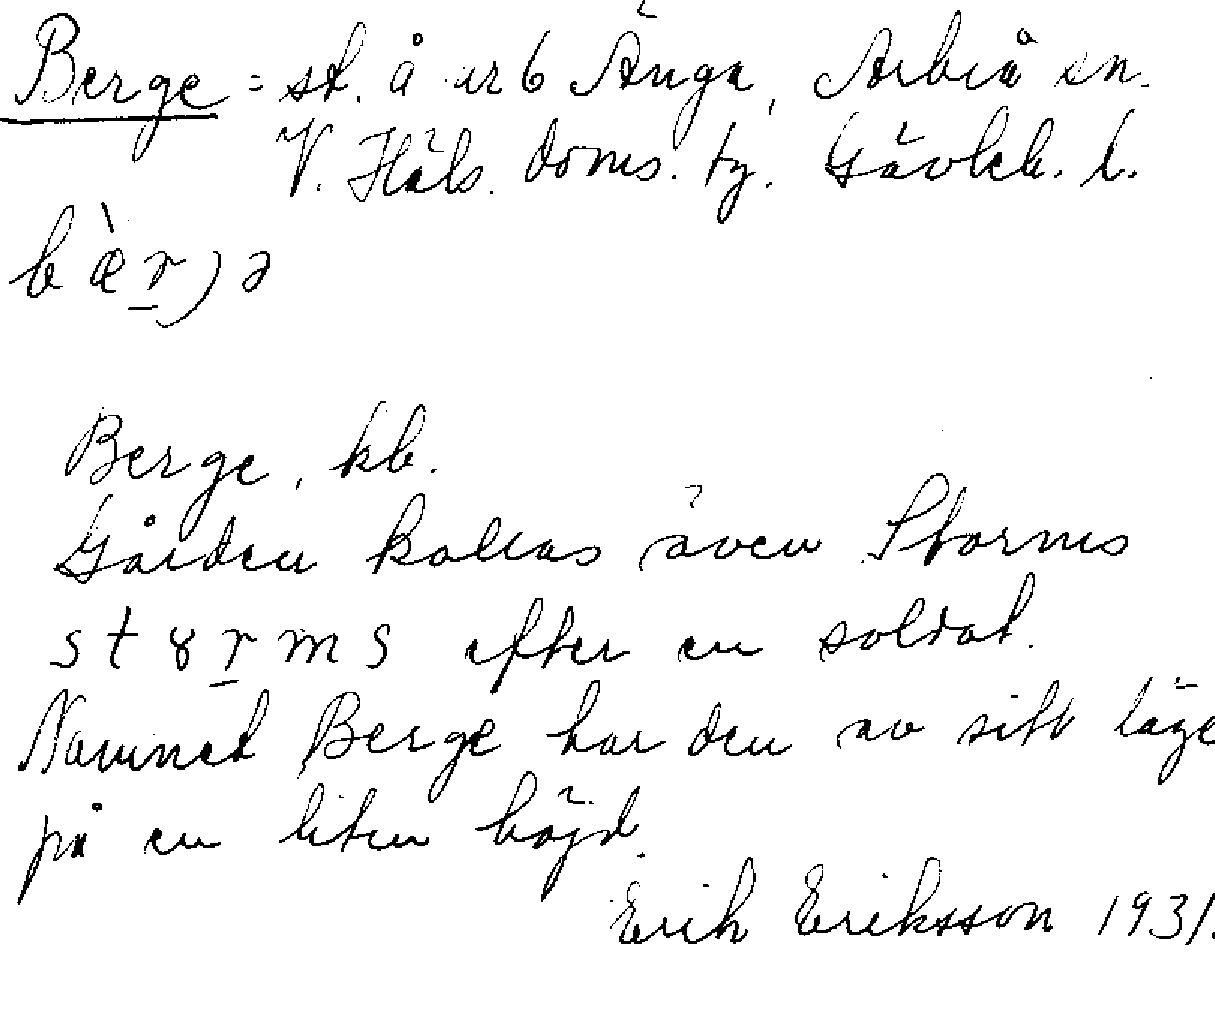 Berge = st. å nr 6 Änga, Arbrå sn.
V. Häls. doms. tg. Gävleb. l.
bæ̀r̠jə
Berge, kb.
Gården kallas även Storms
stȣr̠ms efter en soldat.
Namnet Berge har den av sitt läge
på en liten höjd.
Erik Eriksson 1931.